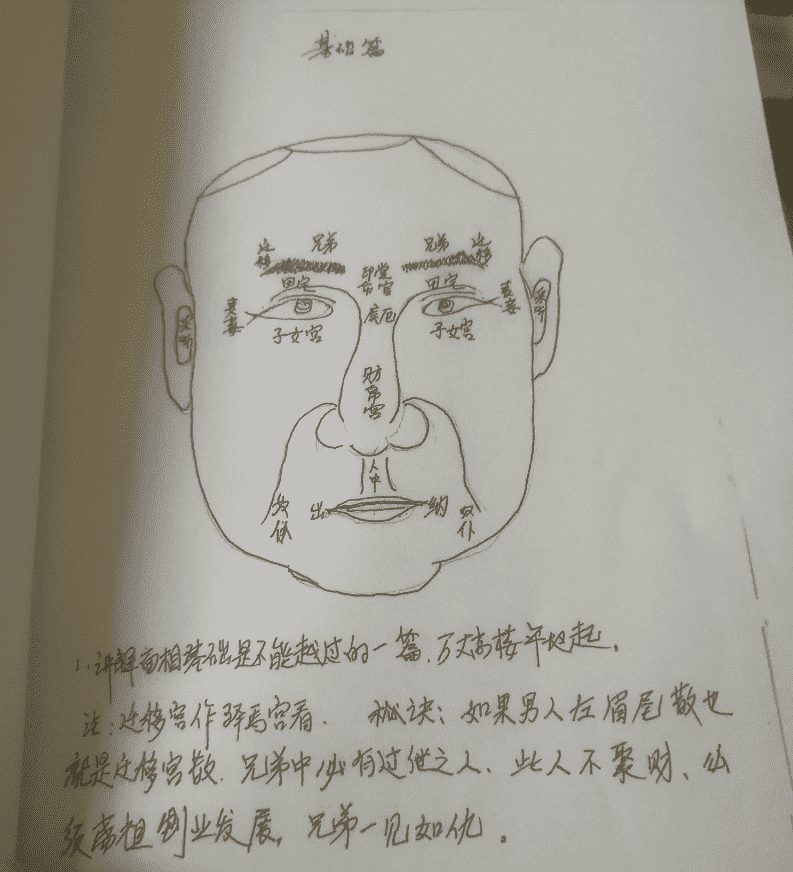 基础篇
迁移 兄弟 兄弟 迁移
田宅 印堂 命宫 田宅
妻妾 疾厄 妻妾
采听 子女宫 子女宫 采听
财帛宫
人中
奴仆 出 纳 奴仆
1.讲解面相基础是不能越过的一篇.万丈高楼平地起.
注:迁移宫作驿马宫看. 秘诀:如果男人左眉尾散也
就是迁移宫散.兄弟中必有过世之人、此人不聚财、必
须离祖创业发展,兄弟一见如仇。